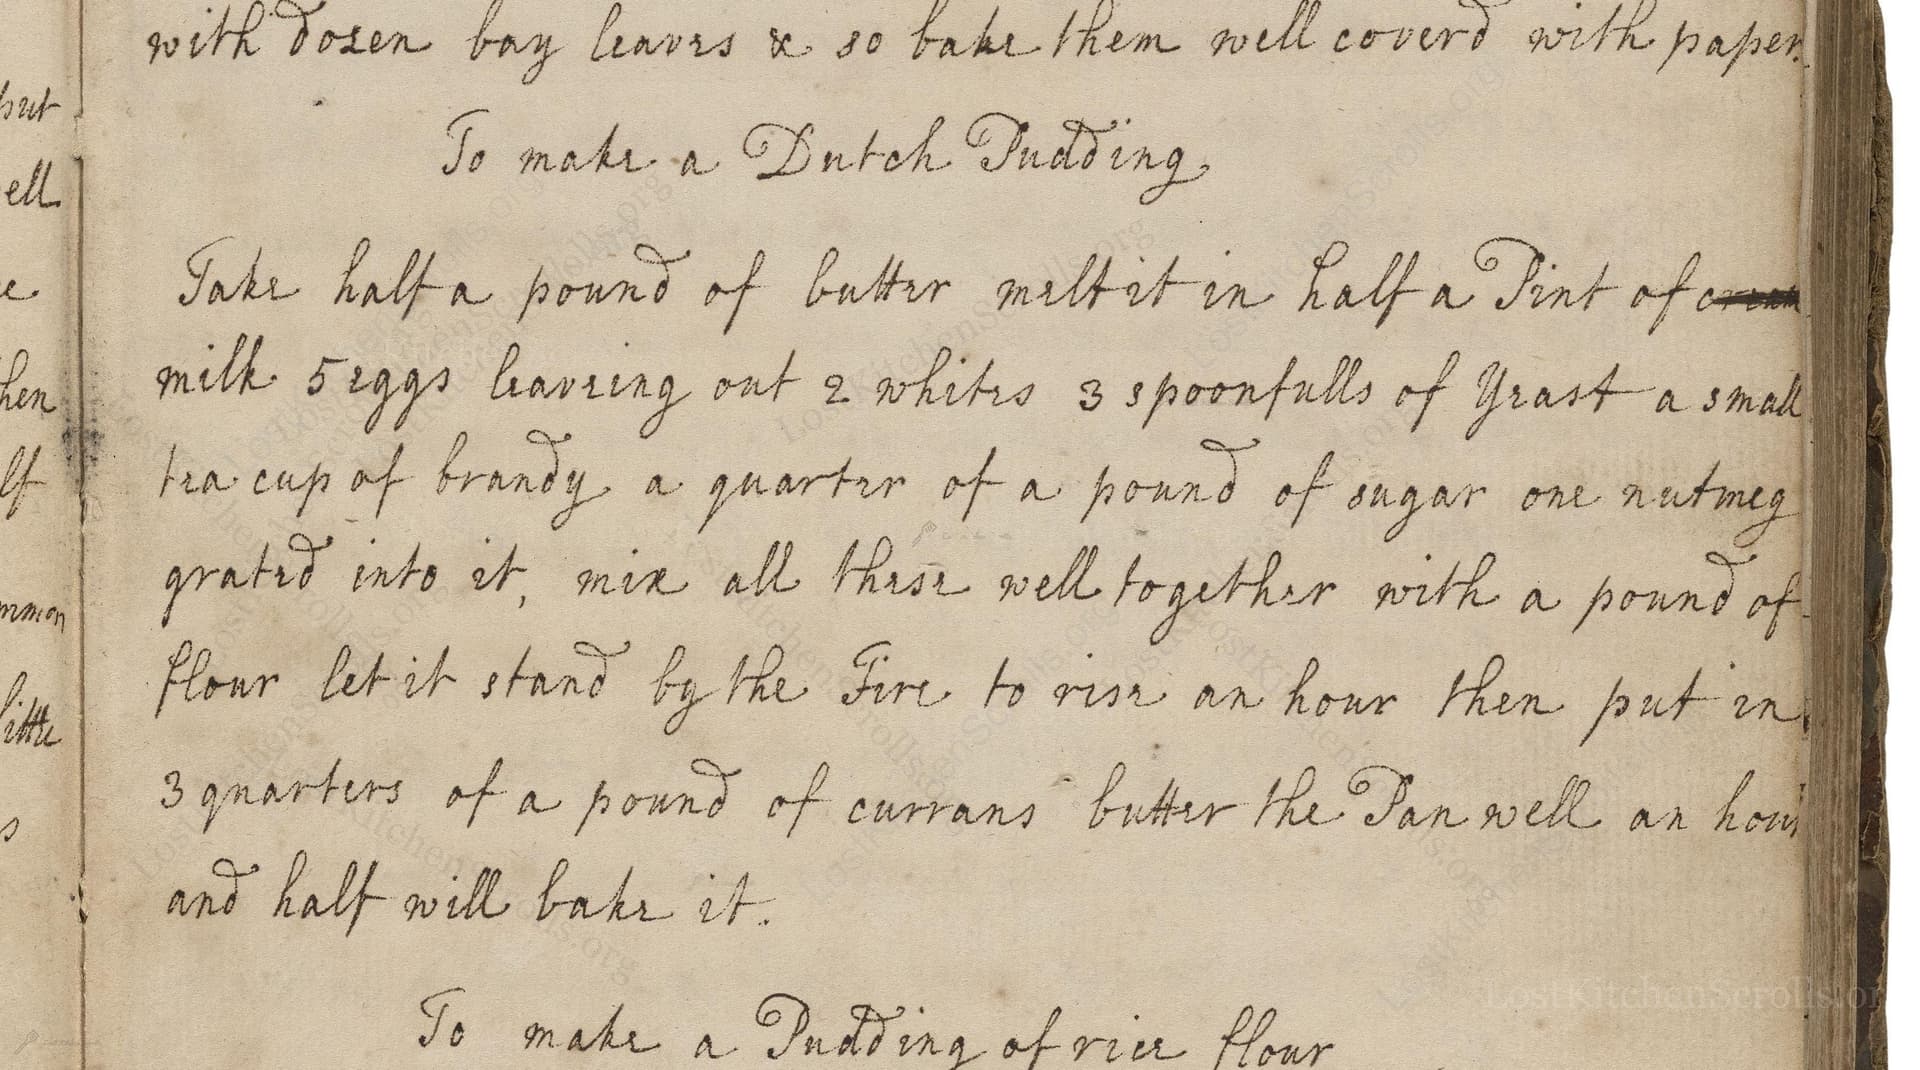 with dozen bay leaves & so bake them well coverd with paper.
To make a Dutch Pudding
Take half a pound of butter melt it in half a Pint of cream
milk 5 eggs leaveing out 2 whites 3 spoonfulls of Yeast a small
tea cup of brandy a quarter of a pound of sugar one nutmeg
grated into it, mix all these well together with a pound of
flour let it stand by the Fire to rise an hour then put in
3 quarters of a pound of currans butter the Pan well an hour
and half will bake it.
To make a Pudding of rice flour
but
ell
e
hen
lf
mmon
little
s
LostKitchenScrolls.or